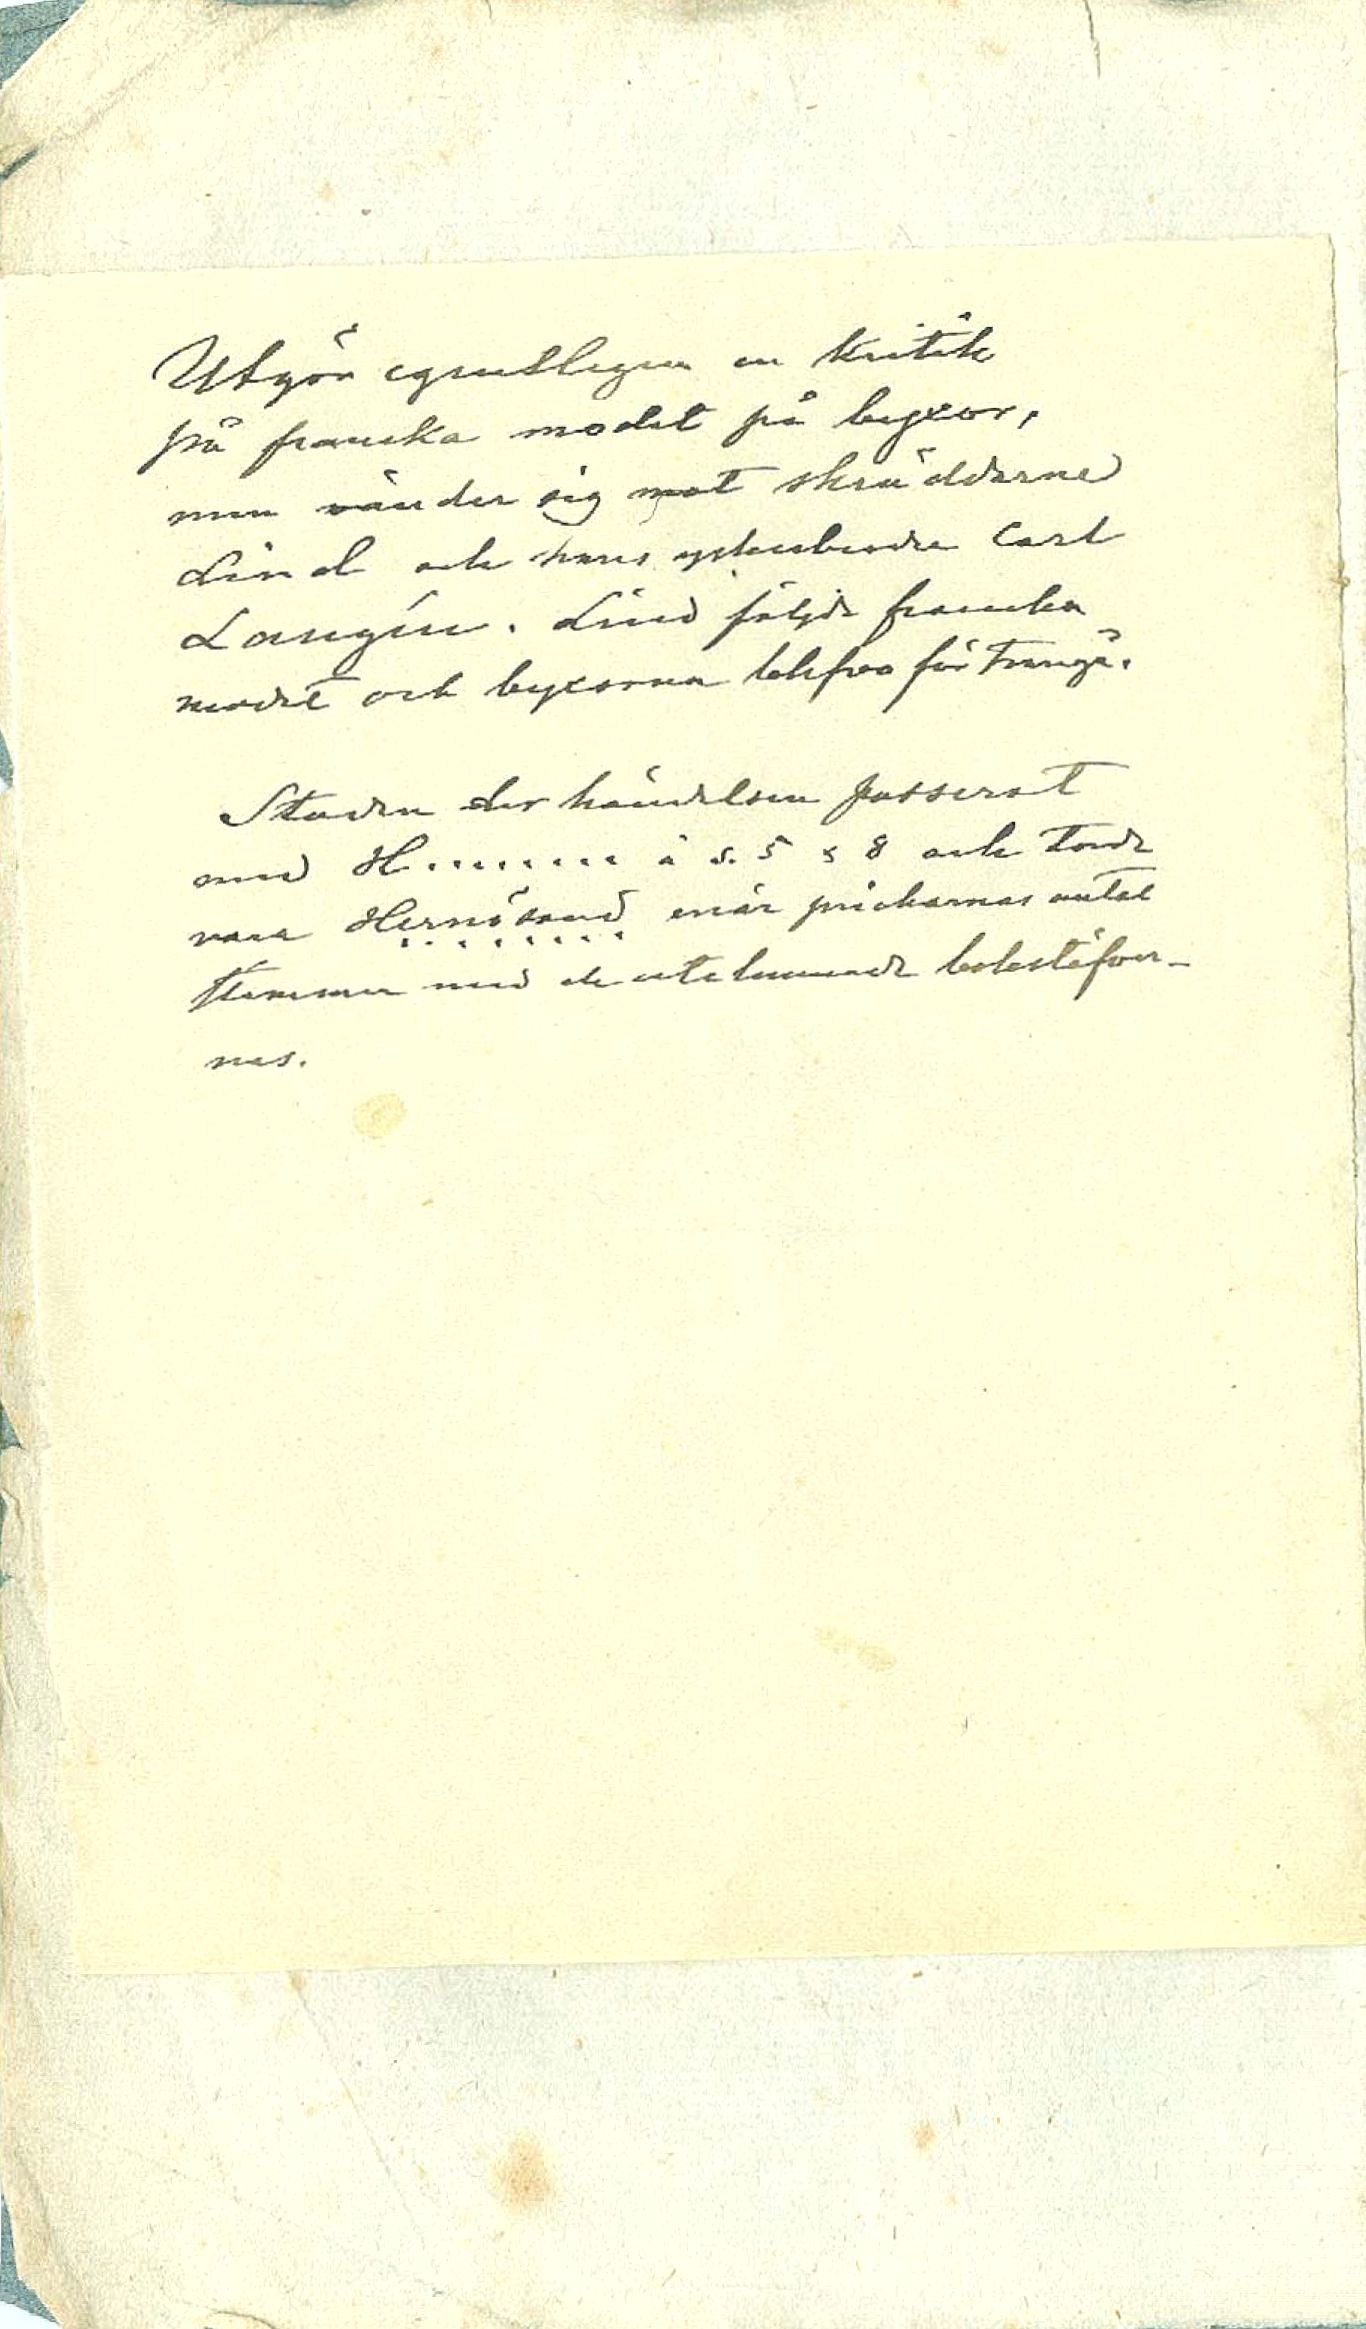 Utgör egentligen en kritik
på franska modet på byxor,
men vänder sig mot skräddarne
Lind och hans yrkesbroder Carl
Langin. Lind följde franska
modet och byxorna blefvo för trånga.
Staden der händelsen passerat
med H......... å s. 5 & 8 och torde
vara Hernösand enär prickarnas antal
stämmer med de utelemnade bokstäfver-
nas.